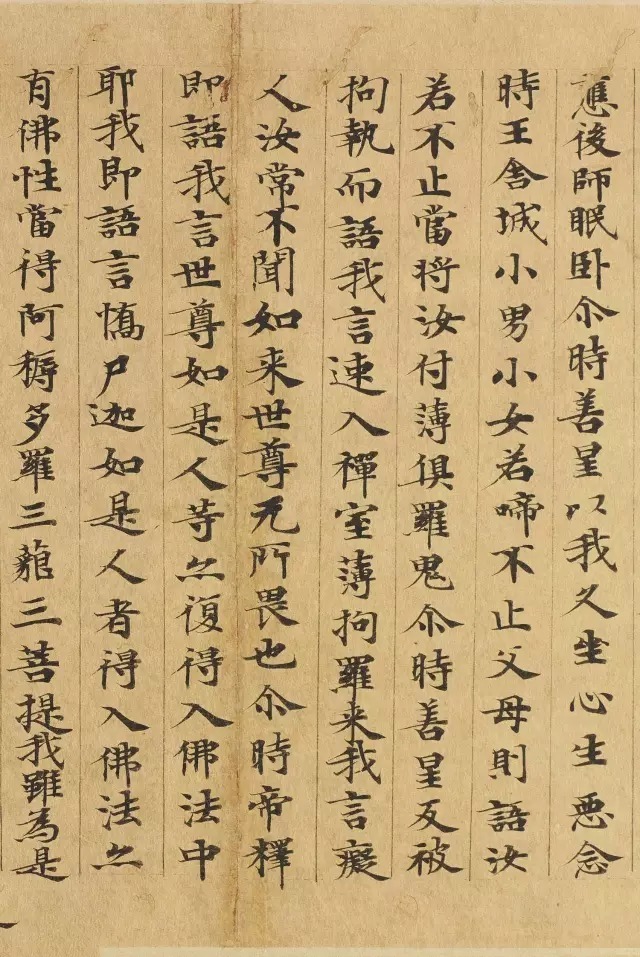 應後師眠卧尒時善星以我久坐心生悪念
時王舍城小男小女若啼不止父母則語汝
若不止當将汝付薄俱羅鬼尒時善星反被
拘執而語我言速入禪室薄拘羅来我言癡
人汝常不聞如来世尊无所畏也尒時帝釋
即語我言世尊如是人等亦復得入佛法中
耶我即語言憍尸迦如是人者得入佛法亦
有佛性當得阿耨多羅三藐三菩提我雖為是